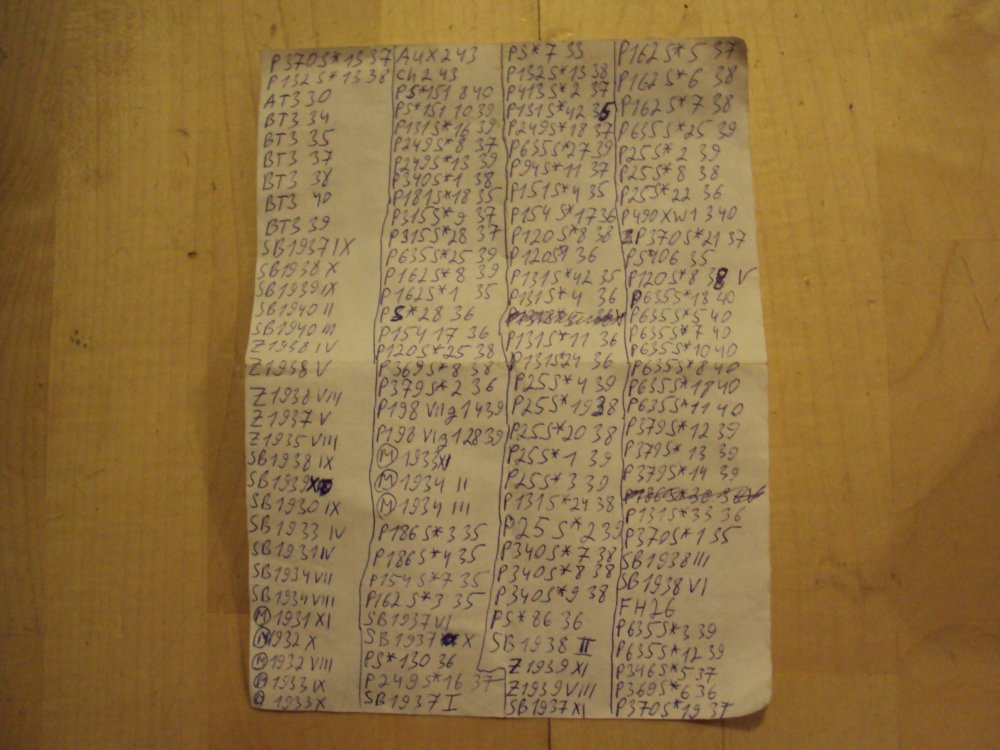 P370S*13 37
P132S*13 38
AT3 30
BT3 34
BT3 35
BT3 37
BT3 38
BT3 40
BT3 39
SB1937 IX
SB1938 X
SB1939 IX
SB1940 II
SB1940 III
Z1938 IV
Z1938 V
Z1938 VIII
Z1937 V
Z1935 VIII
SB1938 IX
SB1939
SB1930 IX
SB1933 IV
SB1931 IV
SB1934 VII
SB1934 VIII
M 1931 XI
M 1932 X
M 1932 VIII
M 1933 IX
M 1933 X
AUX2 43
CH2 43
PS*151 8 40
PS*151 10 39
P131S*16 39
P249S*8 37
P249S*13 39
P340S*1 38
P181S*18 35
P315S*9 37
P315S*28 37
P635S*25 39
P162S*8 39
P162S*1 35
PS*28 36
P154 17 36
P120S*25 38
P369S*8 38
P379S*2 36
P198 VIIg 1 4 39
P198 VIg 1 28 39
M 1933 XI
M 1934 II
M 1934 III
P186S*3 35
P186S*4 35
P154S*7 35
P162S*3 35
SB1937 VI
SB1937 X
PS*130 36
P249S*16 37
SB1937 I
PS*7 33
P132S*13 38
P413S*2 37
P131S*42 35
P249S*18 37
P635S*27 39
P94S*11 37
P151S*4 35
P154S*17 36
P120S*8 38
P120S9 36
P131S*42 35
P131S*4 36
P131S*11 36
P131S24 36
P25S*4 39
P25S*19 38
P25S*20 38
P25S*1 39
P25S*3 39
P131S*24 38
P25S*2 39
P340S*7 38
P340S*8 38
P340S*9 38
PS*86 36
SB1938 II
Z1939 XI
Z1939 VIII
SB1937 XI
P162S*5 37
P162S*6 38
P162S*7 38
P635S*25 39
P25S*2 39
P25S*8 38
P25S*22 36
P490XW1 3 40
P370S*21 37
PS406 35
P120S*8 38 V
P635S*18 40
P635S*5 40
P635S*7 40
P635S*10 40
P635S*8 40
P635S*18 40
P635S*11 40
P379S*12 39
P379S*13 39
P379S*14 39
P131S*33 36
P370S*1 35
SB1938 III
SB1938 VI
FH26
P635S*3 39
P635S*12 39
P346S*5 37
P369S*6 36
P370S*19 37